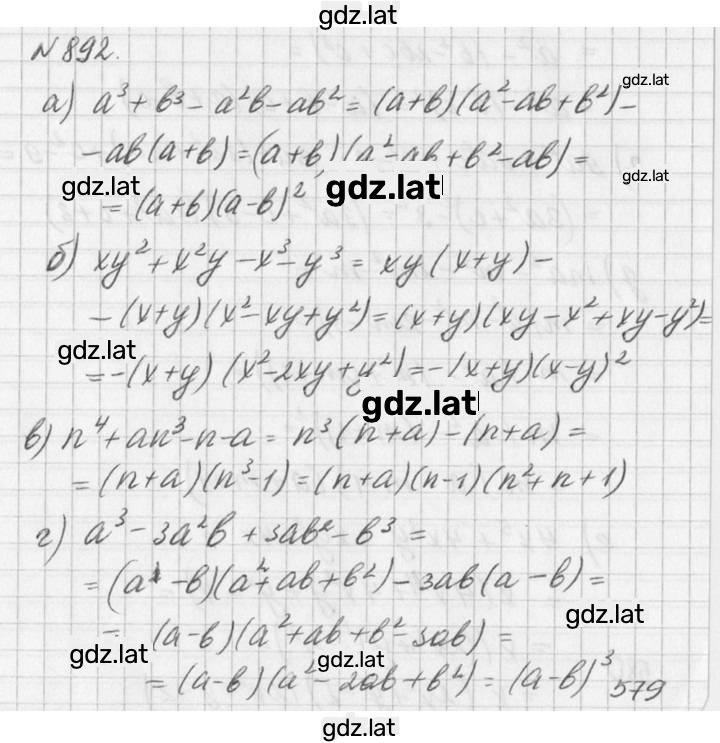 gdz.lat
N 892.
gdz.lat
а) a³ + b³ - a²b - ab² = (a+b)(a² - ab + b²) -
- ab(a+b) = (a+b)(a² - ab + b² - ab) =
gdz.lat gdz.lat gdz.lat
= (a+b)(a-b)²
б) xy² + x²y - x³ - y³ = xy(x+y) -
- (x+y)(x² - xy + y²) = (x+y)(xy - x² + xy - y²) =
gdz.lat
= -(x+y)(x² - 2xy + y²) = -(x+y)(x-y)²
gdz.lat
в) n⁴ + an³ - n - a = n³(n+a) - (n+a) =
= (n+a)(n³-1) = (n+a)(n-1)(n² + n + 1)
г) a³ - 3a²b + 3ab² - b³ =
= (a - b)(a² + ab + b²) - 3ab(a - b) =
gdz.lat
= (a-b)(a² + ab + b² - 3ab) =
gdz.lat gdz.lat
= (a-b)(a² - 2ab + b²) = (a-b)³
579
gdz.lat